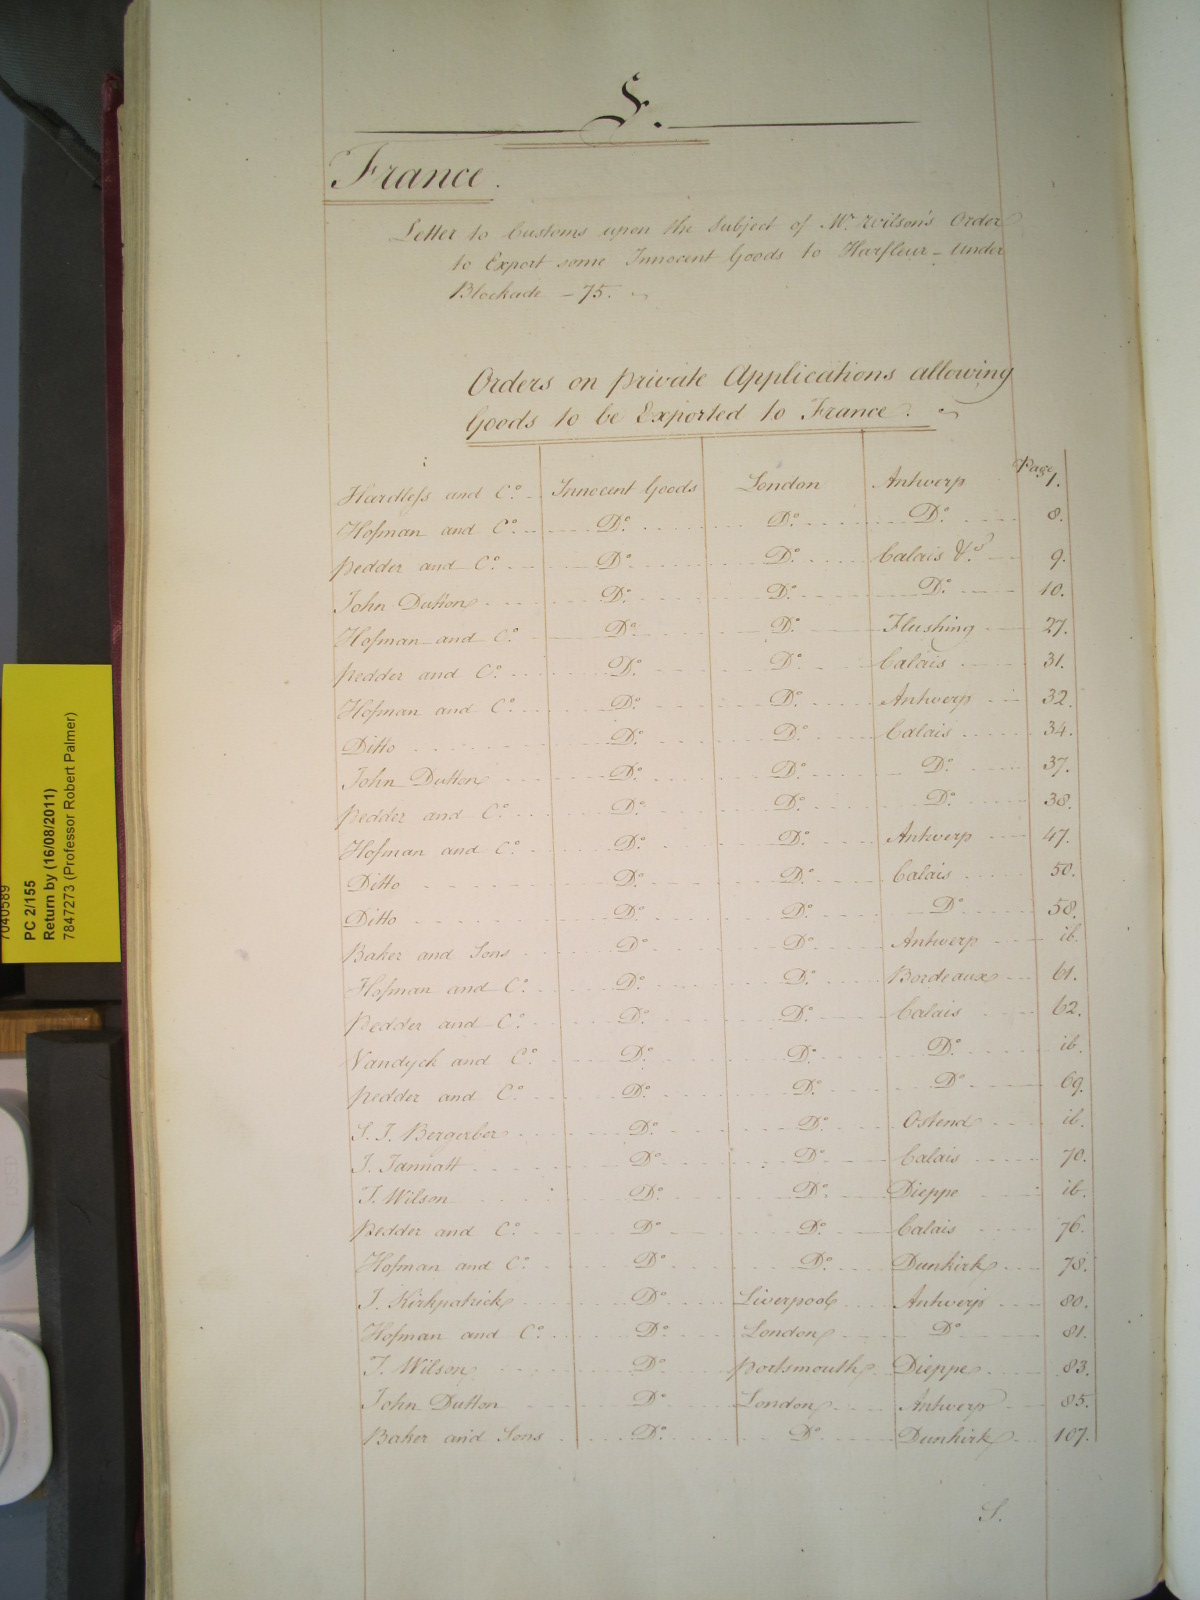 F.
France.
Letter to Customs upon the Subject of Mr. Wilson's Order
to Export some Innocent Goods to Harfleur – Under
Blockade – 75.
Orders on private Applications allowing
Goods to be Exported to France.
Page
Hardless and Co. Innocent Goods London Antwerp 1.
Hofman and Co. Do. Do. Do. 8.
Pedder and Co. Do. Do. Calais &c. 9.
John Dutton Do. Do. Do. 10.
Hofman and Co. Do. Do. Flushing 27.
Pedder and Co. Do. Do. Calais 31.
Hofman and Co. Do. Do. Antwerp 32.
Ditto Do. Do. Calais 34.
John Dutton Do. Do. Do. 37.
Pedder and Co. Do. Do. Do. 38.
Hofman and Co. Do. Do. Antwerp 47.
Ditto Do. Do. Calais 50.
Ditto Do. Do. Do. 58.
Baker and Sons Do. Do. Antwerp ib.
Hofman and Co. Do. Do. Bordeaux 61.
Pedder and Co. Do. Do. Calais 62.
Vandyck and Co. Do. Do. Do. ib.
Pedder and Co. Do. Do. Do. 69.
S. J. Bergerber Do. Do. Ostend ib.
J. Jannatt Do. Do. Calais 70.
T. Wilson Do. Do. Dieppe ib.
Pedder and Co. Do. Do. Calais 76.
Hofman and Co. Do. Do. Dunkirk 78.
J. Kirkpatrick Do. Liverpool Antwerp 80.
Hofman and Co. Do. London Do. 81.
T. Wilson Do. Portsmouth Dieppe 83.
John Dutton Do. London Antwerp 85.
Baker and Sons Do. Do. Dunkirk 107.
7040589
PC 2/155
Return by (16/08/2011)
7847273 (Professor Robert Palmer)